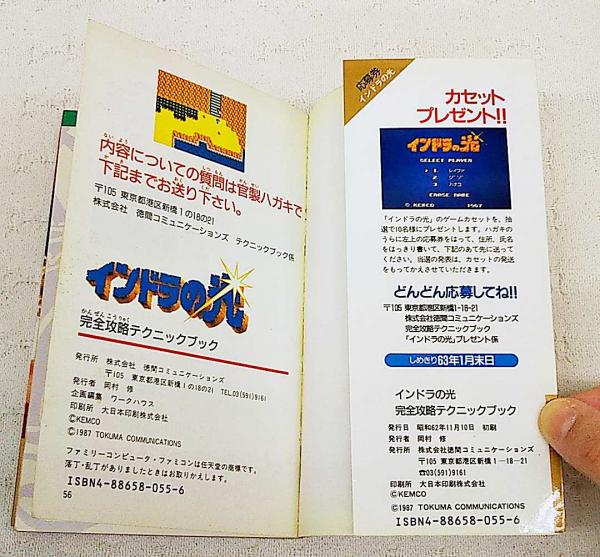 内容についての質問は官製ハガキで
下記までお送り下さい。
〒105 東京都港区新橋1の18の21
株式会社 徳間コミュニケーションズ テクニックブック係
インドラの光
かんぜんこうりゃく
完全攻略テクニックブック
発行所 株式会社 徳間コミュニケーションズ
〒105 東京都港区新橋1の18の21 TEL.03(591)9161
発行者 岡村 修
企画編集 ワークハウス
印刷所 大日本印刷株式会社
©KEMCO
©1987 TOKUMA COMMUNICATIONS
ファミリーコンピュータ・ファミコンは任天堂の商標です。
落丁・乱丁がありましたときはお取りかえします。
ISBN4-88658-055-6
56
応募券
インドラの光
カセット
プレゼント!!
インドラの光
SELECT PLAYER
1 レイファ
2
3
ERASE NAME
© KEMCO 1987
「インドラの光」のゲームカセットを、抽
選で10名様にプレゼントします。ハガキの
うらに左上の応募券をはって、住所、氏名
をはっきり書いて、下記のあて先に送って
ください。当選の発表は、カセットの発送
をもってかえさせていただきます。
どんどん応募してね!!
〒105 東京都港区新橋1-18-21
株式会社徳間コミュニケーションズ
完全攻略テクニックブック
「インドラの光」プレゼント係
しめきり63年1月末日
インドラの光
完全攻略テクニックブック
発行日 昭和62年11月10日 初刷
発行者 岡村 修
発行所 株式会社徳間コミュニケーションズ
〒105 東京都港区新橋1-18-21
☎03(591)9161
印刷所 大日本印刷株式会社
©KEMCO
©1987 TOKUMA COMMUNICATIONS
ISBN4-88658-055-6